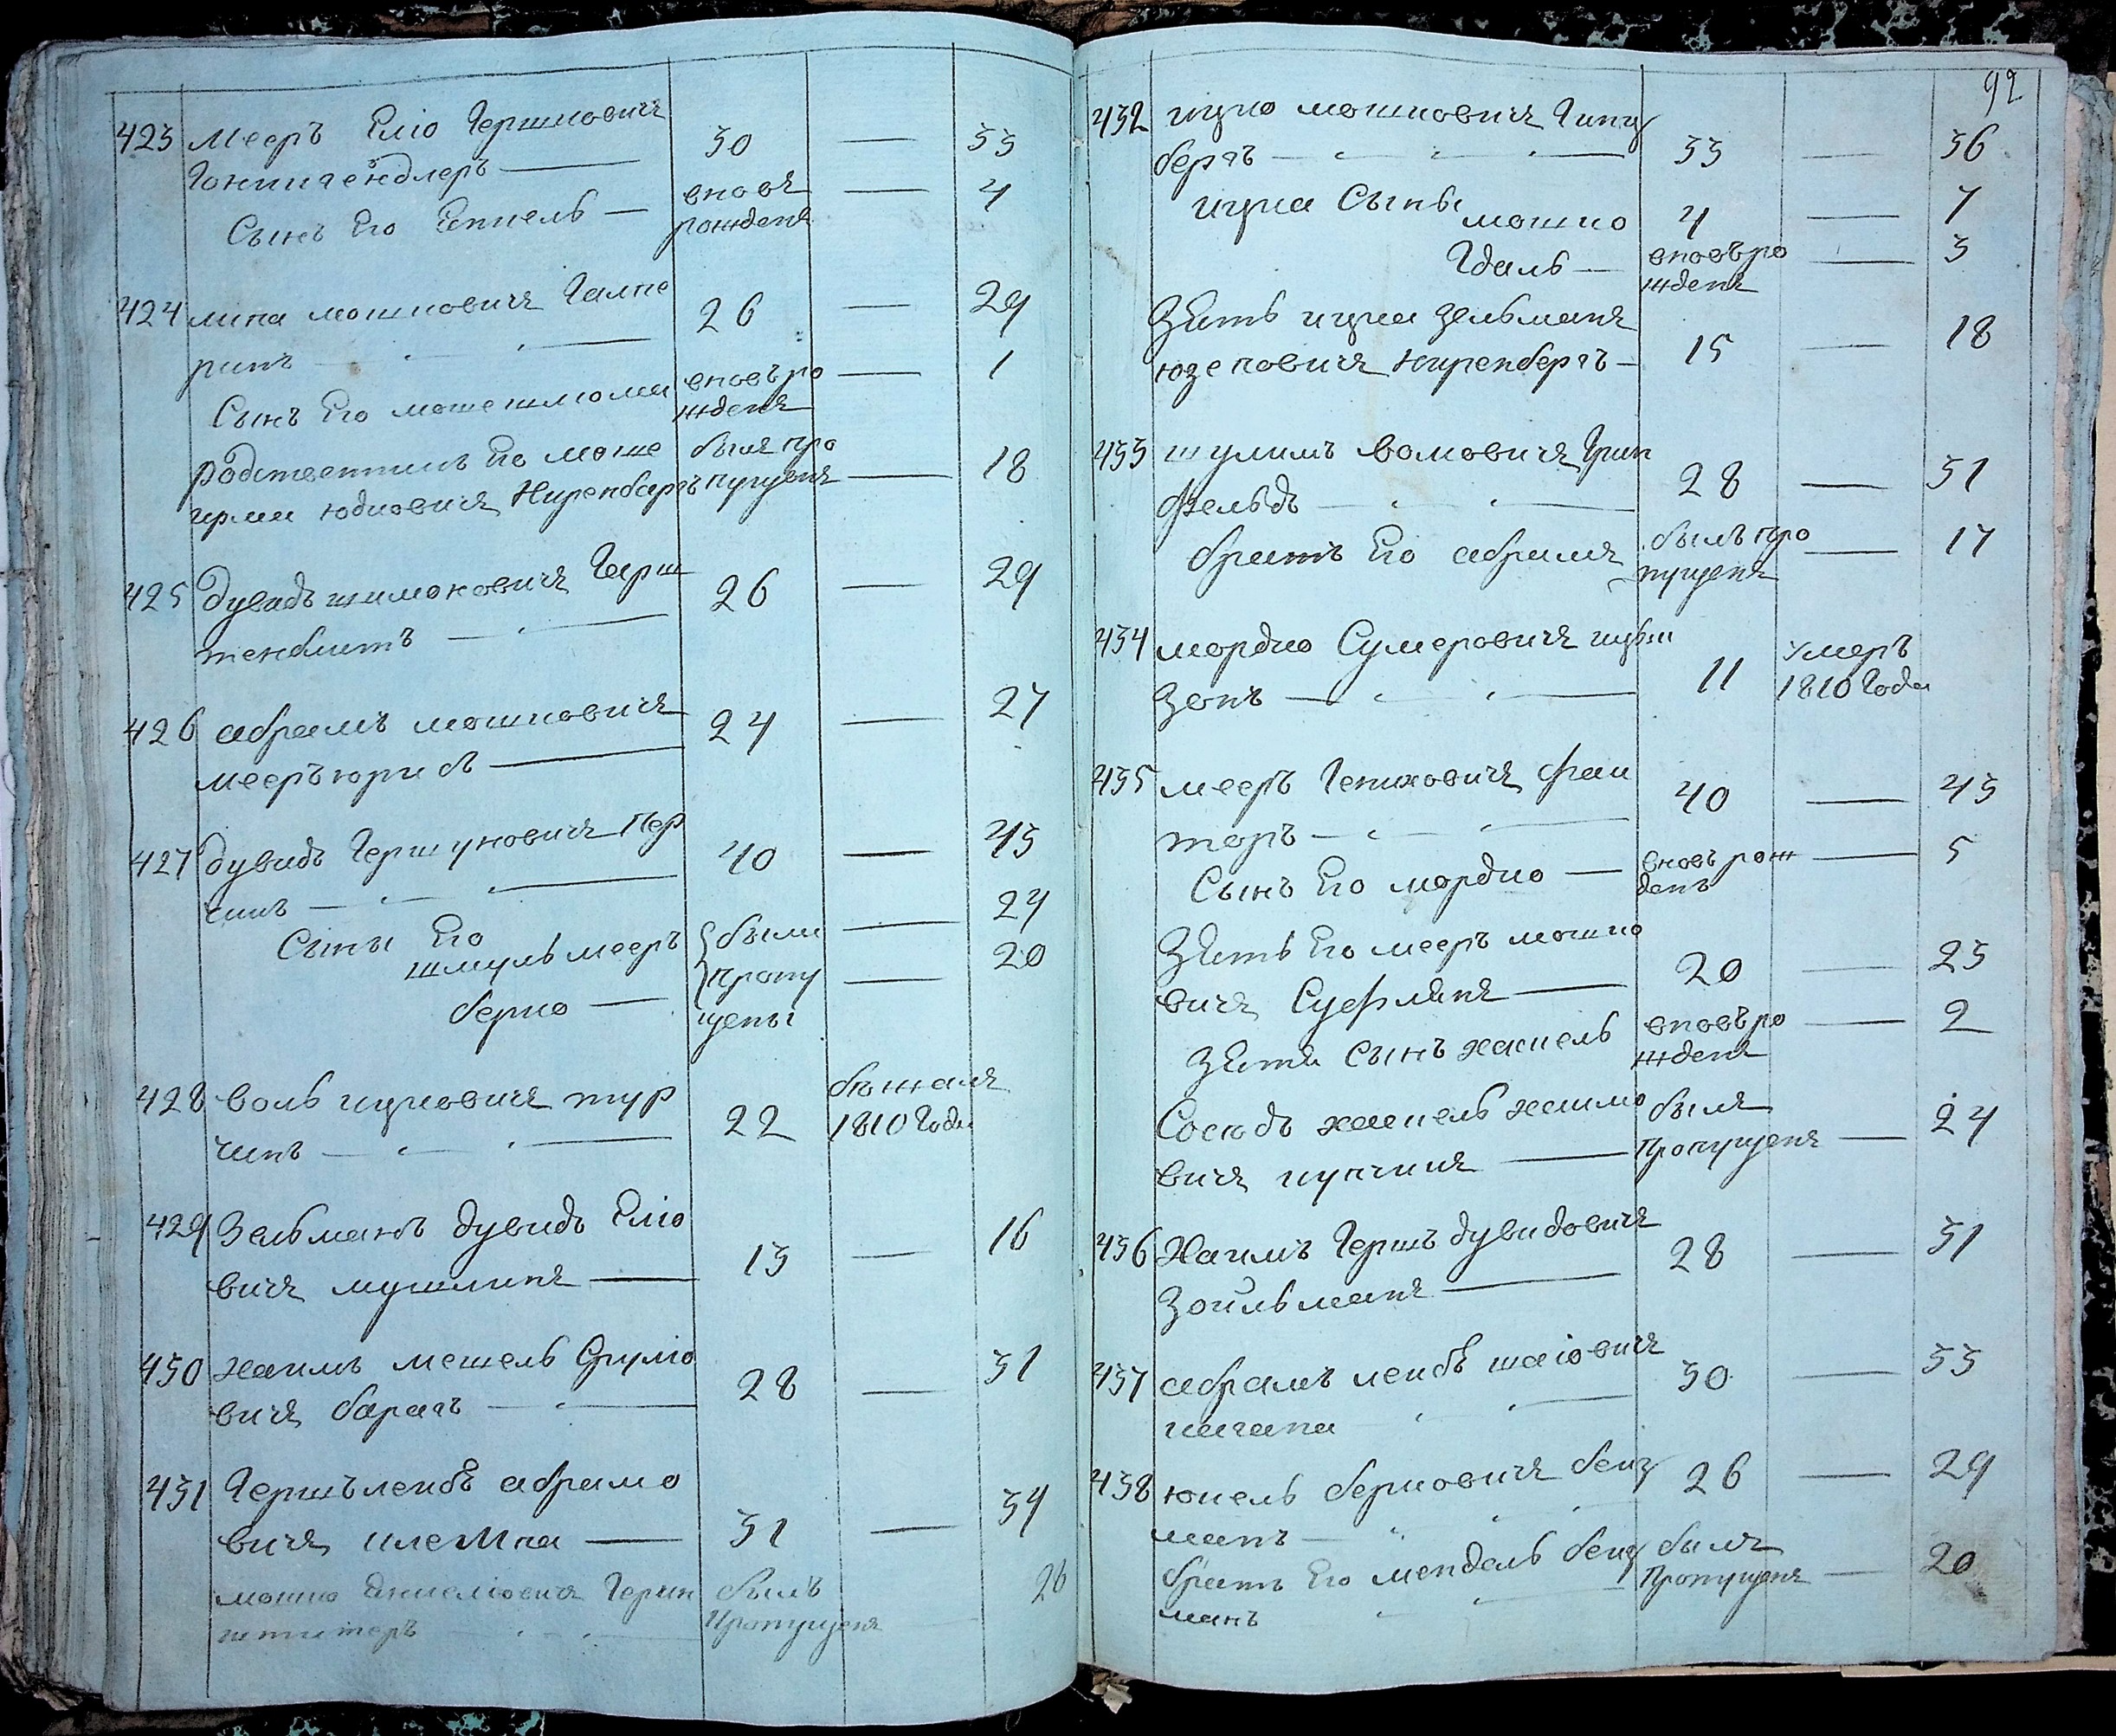 423 мееръ Еліо Гершковичъ
Гонишендлеръ — 30 — 33
Сынъ Его Еншель — вновь — 4
рожденъ
424 липа мошковичъ Галпе
ринъ — 26 — 29
Сынъ Его моше шлома вновъ ро — 1
жденъ
родственникъ Его моше былъ про
ирма юдковичъ Ниренбаргъ пущенъ — 18
425 дувидъ шимоновичъ Гарш
тенблитъ — 26 — 29
426 абрамъ мошковичъ 24 — 27
мееръ
427 дувидъ Гершуновичъ Пер
чинъ — 40 — 43
Сыны Его
шмуль мееръ были — 24
берко — пропу — 20
щены
428 воль ицковичъ тур 22 бѣжалъ
чинъ — 1810 Года
429 Зельманъ дувидъ Еліо
вичъ мушлинъ — 13 — 16
430 хаимъ мешель Сруліо
вичъ барагъ — 28 — 31
431 Гершъ леибъ абрамо
вичъ — 31 — 34
мошко былъ 26
Пропущенъ
92
432 ицко мошковичъ Гинц
бергъ — 33 — 36
ицка Сыны
мошко 4 — 7
Гдаль — вновъ ро — 3
жденъ
Зять ицка Зельманъ
юзеповичъ Ниренбергъ — 15 — 18
433 шулимъ вомовичъ Грин
фельдъ — 28 — 31
братъ Его абрамъ былъ про — 17
пущенъ
434 мордко Сумеровичъ
зонъ — 11 Умеръ
1810 Года
435 мееръ Гениховичъ фак
торъ — 40 — 43
Сынъ Его мордко — вновь рож — 3
денъ
Зять Его мееръ мошко
вичъ Суфлянъ — 20 — 23
Зятя Сынъ хаскель вновъ ро — 2
жденъ
Сосѣдъ хаскель хаимо былъ
вичъ купчикъ — Пропущенъ — 24
436 Хаимъ Гершъ дувидовичъ
Зойльманъ — 28 — 31
437 абрамъ леибъ шаіовичъ 30 — 33
438 юкель берковичъ бенц 26 — 29
манъ —
братъ Его мендель бенц былъ
манъ Пропущенъ — 20